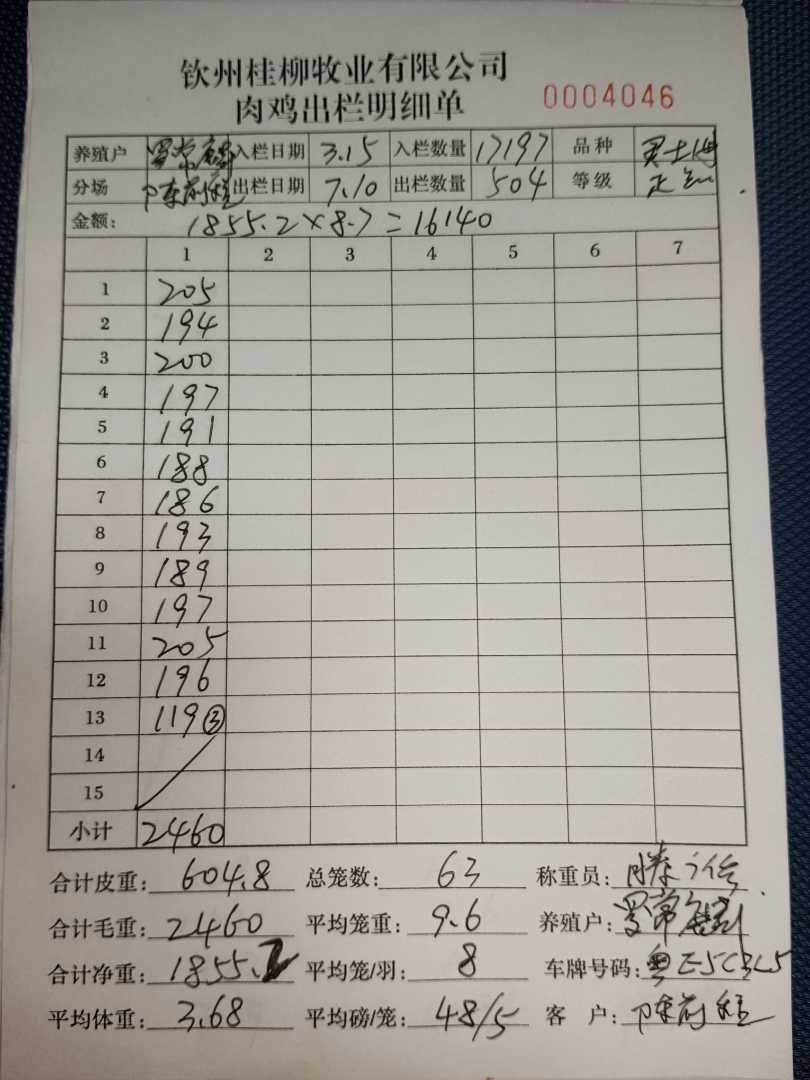 钦州桂柳牧业有限公司
肉鸡出栏明细单 0004046
养殖户 入栏日期 3.15 入栏数量 17197 品种
分场 陈前程 出栏日期 7.10 出栏数量 504 等级
金额: 1855.2×8.7=16140
1 2 3 4 5 6 7
1 205
2 194
3 200
4 197
5 191
6 188
7 186
8 193
9 189
10 197
11 205
12 196
13 119③
14
15
小计 2460
合计皮重: 604.8 总笼数: 63 称重员:
合计毛重: 2460 平均笼重: 9.6 养殖户:
合计净重: 1855.2 平均笼/羽: 8 车牌号码: 粤E5CBL5
平均体重: 3.68 平均磅/笼: 48/5 客 户: 陈前程